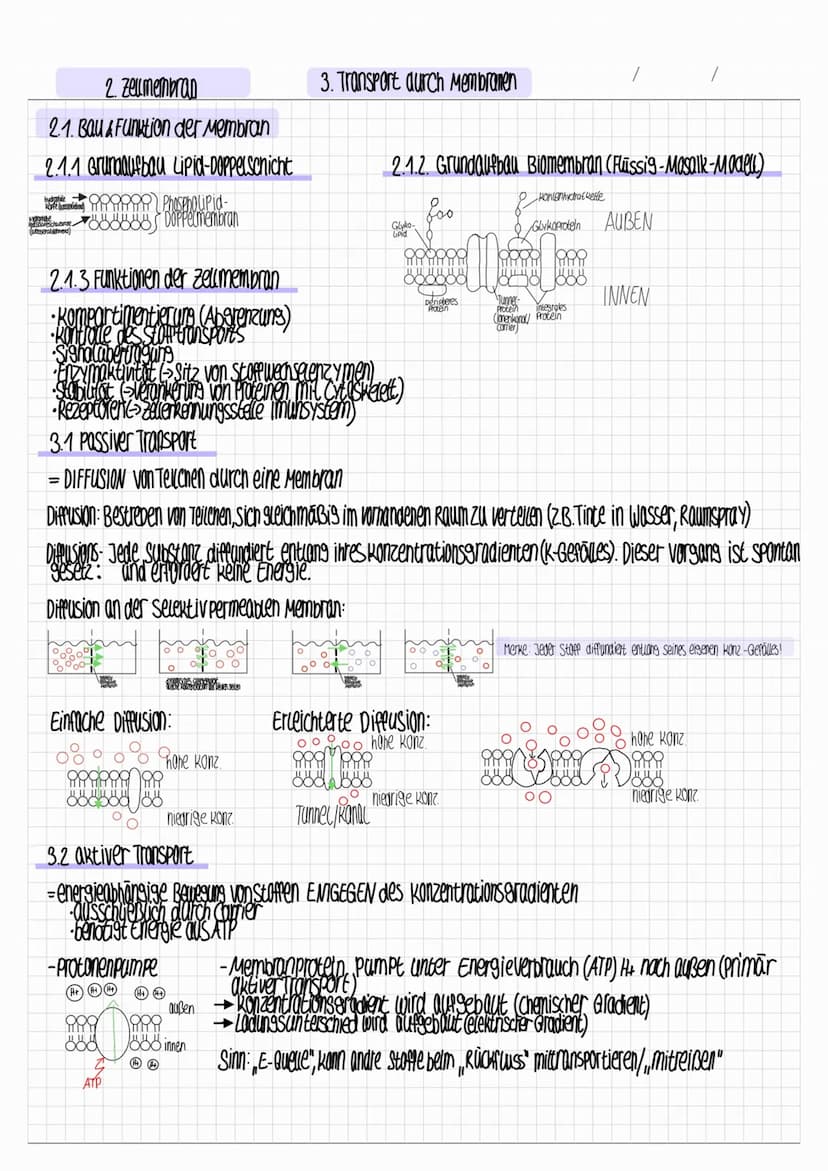 2. Zellmembran
3. Transport durch Membranen
/ /
2.1. Bau & Funktion der Membran
2.1.1 Grundaufbau Lipid-Doppelschicht
2.1.2. Grundaufbau Biomembran (Flüssig-Mosaik-Modell)
Phospholipid-
Doppelmembran
Kohlenhydratkette
Glyko-
Lipid
Glykoprotein
AUßEN
INNEN
peripheres
Protein
Tunnel-
Protein
(Ionenkanal/
Carrier)
integrales
Protein
2.1.3 Funktionen der Zellmembran
• Kompartimentierung (Abgrenzung)
• Kontrolle des Stofftransports
• Signalübertragung
• Enzymaktivität (→ Sitz von Stoffwechselenzymen)
• Stabilität (→ Verankerung von Proteinen mit Cytoskelett)
• Rezeptoren (→ Zellerkennungsstelle Imunsystem)
3.1 Passiver Transport
= DIFFUSION von Teilchen durch eine Membran
Diffusion: Bestreben von Teilchen, sich gleichmäßig im vorhandenen Raum zu verteilen (z.B. Tinte in Wasser, Raumspray)
Diffusions- Jede Substanz diffundiert entlang ihres Konzentrationsgradienten (K-Gefälles). Dieser Vorgang ist spontan
gesetz: und erfordert keine Energie.
Diffusion an der Selektiv permeablen Membran:
Merke: Jeder Stoff diffundiert entlang seines eigenen Konz.-Gefälles!
Einfache Diffusion:
Erleichterte Diffusion:
hohe Konz.
hohe Konz.
hohe Konz.
niedrige Konz.
niedrige Konz.
niedrige Konz.
Tunnel/Kanal
3.2 aktiver Transport
= energieabhängige Bewegung von Stoffen ENTGEGEN des Konzentrationsgradienten
• ausschließlich durch Carrier
• benötigt Energie aus ATP
- Protonenpumpe
- Membranprotein, pumpt unter Energieverbrauch (ATP) H+ nach außen (primär
aktiver Transport)
→ Konzentrationsgradient wird aufgebaut (chemischer Gradient)
→ Ladungsunterschied wird aufgebaut (elektrischer Gradient)
H+ H+ H+ H+ H+
außen
innen
H+ H+
ATP
Sinn: „E-Quelle", kann andre Stoffe beim „Rückfluss" mittransportieren/„mitreißen"